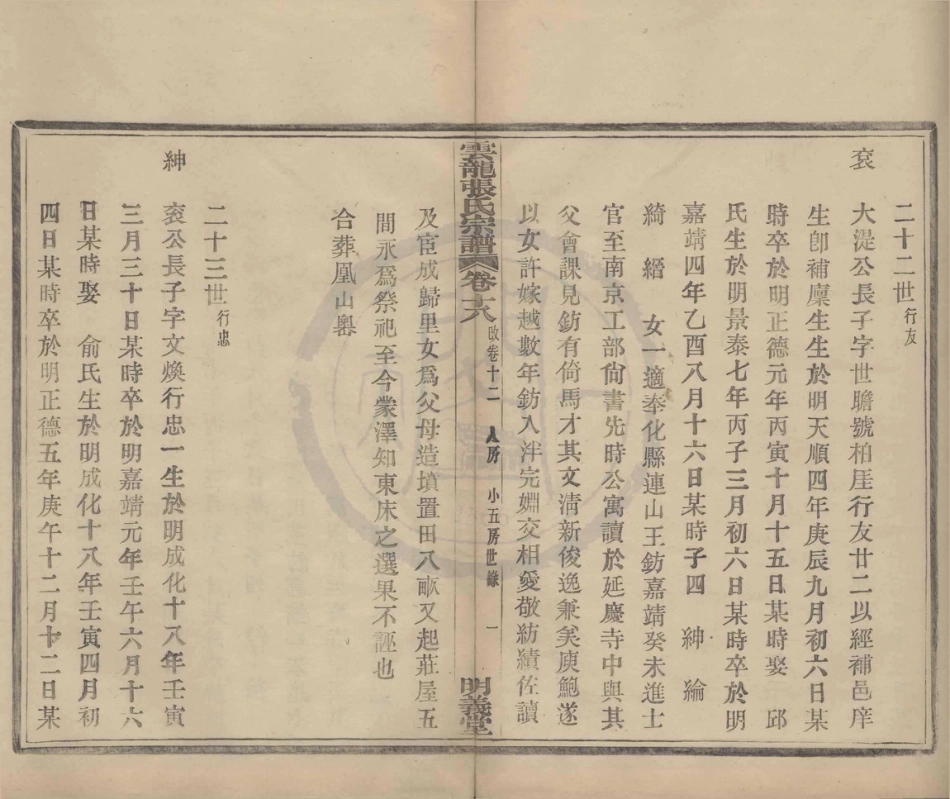 二十二世行友
袞 大湜公長子字世瞻號柏厓行友廿二以經補邑庠
生卽補廩生生於明天順四年庚辰九月初六日某
時卒於明正德元年丙寅十月十五日某時娶 邱
氏生於明景泰七年丙子三月初六日某時卒於明
嘉靖四年乙酉八月十六日某時子四 紳 綸
綺 縉 女一適奉化縣連山王鈁嘉靖癸未進士
官至南京工部尙書先時公寓讀於延慶寺中與其
父會課見鈁有倚馬才其文淸新俊逸兼矣庾鮑遂
以女許嫁越數年鈁入泮完婣交相愛敬紡績佐讀
雲龍張氏宗譜 卷十八 改卷十二 人房 小五房世錄 一 明義堂
及宦成歸里女爲父母造墳置田八畝又起莊屋五
間永爲祭祀至今蒙澤知東床之選果不誣也
合葬凰山嶴
二十三世行忠
紳 袞公長子字文煥行忠一生於明成化十八年壬寅
三月三十日某時卒於明嘉靖元年壬午六月十六
日某時娶 俞氏生於明成化十八年壬寅四月初
四日某時卒於明正德五年庚午十二月十二日某